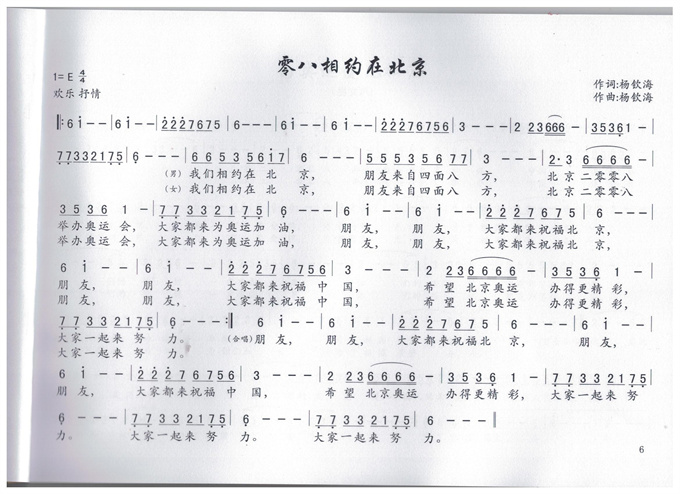 零八相约在北京
1=E 4/4
作词:杨钦海
欢乐 抒情
作曲:杨钦海
‖: 6 i - - | 6 i - - | 2 2 2 7 6 7 5 | 6 - - - | 6 i - - | 6 i - - | 2 2 2 7 6 7 5 6 | 3 - - - | 2 2 3 6 6 6 | 3 5 3 6 1 - |
7 7 3 3 2 1 7 5 | 6 - - - | 6 6 5 3 5 6 i 7 | 6 - - - | 5 5 5 3 5 6 7 7 | 6 - - - | 2 · 3 6 6 6 6 |
(男) 我们相约在 北 京, 朋友来自四面八 方, 北京 二零零八
(女) 我们相约在 北 京, 朋友来自四面八 方, 北京 二零零八
3 5 3 6 1 - | 7 7 3 3 2 1 7 5 | 6 - - - | 6 i - - | 6 i - - | 2 2 2 7 6 7 5 | 6 - - - |
举办奥运 会, 大家都来为奥运加 油, 朋 友, 朋 友, 大家都来祝福北 京,
举办奥运 会, 大家都来为奥运加 油, 朋 友, 朋 友, 大家都来祝福北 京,
6 i - - | 6 i - - | 2 2 2 7 6 7 5 6 | 3 - - - | 2 2 3 6 6 6 6 | 3 5 3 6 1 - |
朋 友, 朋 友, 大家都来祝福 中 国, 希 望 北京奥运 办得更精 彩,
朋 友, 朋 友, 大家都来祝福 中 国, 希 望 北京奥运 办得更精 彩,
7 7 3 3 2 1 7 5 | 6 - - - :‖ 6 i - - | 6 i - - | 2 2 2 7 6 7 5 | 6 - - - | 6 i - - |
大家一起来 努 力。 (合唱) 朋 友, 朋 友, 大家都来祝福北 京, 朋 友,
大家一起来 努 力。
6 i - - | 2 2 2 7 6 7 5 6 | 3 - - - | 2 2 3 6 6 6 6 | 3 5 3 6 1 - | 7 7 3 3 2 1 7 5 |
朋 友, 大家都来祝福 中 国, 希 望 北京奥运 办得更精 彩, 大家一起来 努
6 - - - | 7 7 3 3 2 1 7 5 | 6 - - - | 7 7 3 3 2 1 7 5 | 6 - - - ‖
力。 大家一起来 努 力。 大家一起来 努 力。
6